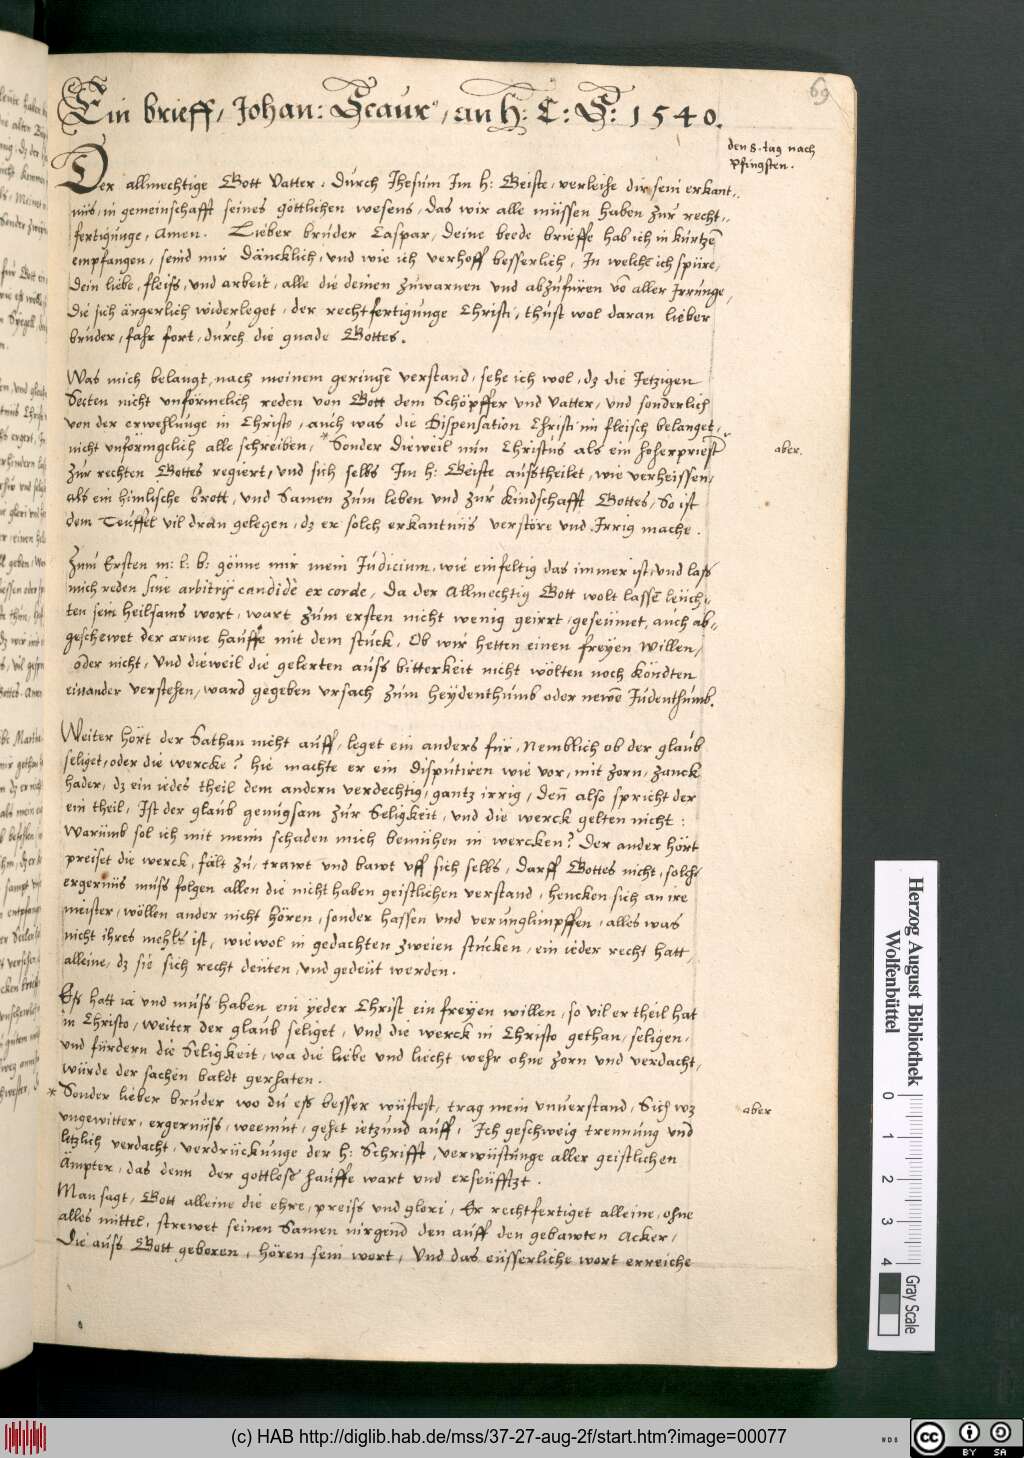 69
Ein brieff, Johan: Scaur', an H: C: S: 1540.
den 8. tag nach
Pfingsten.
Der allmechtige Gott Vatter, durch Jhesum Im H: Geiste, verleihe dir sein erkant-
nüs, in gemeinschafft seines göttlichen wesens, das wir alle müssen haben zur recht-
fertigunge, Amen. Lieber bruder Caspar, deine beede brieffe hab ich in kurtzē
empfangen, seind mir däncklich, und wie ich verhoff besserlich, In welchē ich spüre,
dein liebe, fleiss, und arbeit, alle die deinen zuwarnen und abzufüren vō aller Irrunge,
die sich ärgerlich widerleget, der rechtfertigunge Christi, thust wol daran lieber
bruder, fahr fort, durch die gnade Gottes.
Was mich belangt, nach meinem geringē verstand, sehe ich wol, dz die Jetzigen
Secten nicht unförmelich reden von Gott dem Schöpffer und Vatter, und sonderlich
von der erwehlunge in Christo, auch was die Dispensation Christi im fleisch belanget,
nicht unförmgclich alle schreiben, * Sonder dieweil nun Christus als ein hoherpriest
aber.
zur rechten Gottes regiert, und sich selbs Im H: Geiste aussthheilet, wie verheissen,
als ein himlische brott, und Samen zum leben und zur kindschafft Gottes, So ist
dem Teuffel vil dran gelegen, dz er solch erkantnüs verstöre und Irrig mache.
Zum Ersten m: l: b: gönne mir mein Judicium, wie einfeltig das immer ist, und lass
mich reden sine arbitrijs candidè ex corde, Da der Allmechtig Gott wolt lassē leuch-
ten sein heilsams wort, wart zum ersten nicht wenig geirrt, geseümet, auch ab-
geschewet der arme hauffe mit dem stuck, Ob wir hetten einen freyen willen,
oder nicht, Und dieweil die gelerten auss bitterkeit nicht wölten noch köndten
einander verstehen, ward gegeben ursach zum heydenthumb oder newē Judenthumb.
Weiter hört der Sathan nicht auff, leget ein anders für, Nemblich ob der glaub
seliget, oder die wercke? hie machte er ein disputiren wie vor, mit zorn, zanck
hader, dz ein iedes theil dem andern verdechtig, gantz irrig, den̄ also spricht der
ein theil, Ist der glaub genugsam zur Seligkeit, und die werck gelten nicht:
Warumb sol ich mit meim schaden mich bemühen in wercken? Der ander hört
preiset die werck, fält zu, trawt und bawt uff sich selbs, darff Gottes nicht, solch
ergernüs muss folgen allen die nicht haben geistlichen verstand, hencken sich an ire
meister, wöllen ander nicht hören, sonder hassen und verunglimpffen, alles was
nicht ihres mehls ist, wiewol in gedachten zweien stucken, ein ieder recht hatt
alleine, dz sie sich recht deüten, und gedeüt werden.
Ess hatt ia und muss haben ein yeder Christ ein freyen willen, so vil er theil hat
in Christo, weiter der glaub seliget, und die werck in Christo gethan, seligen,
und fürdern die Seligkeit, wa die liebe und liecht wehr ohne zorn und verdacht,
würde der sachen baldt gerhaten.
* Sonder lieber bruder wo du ess besser wüstest, trag mein unverstand, Sich wz
aber
ungewitter, ergernüss, weemut, gehet ietzund auff, Ich geschweig trennung und
letzlich verdacht, verdrückunge der H: Schrifft, verwüstunge aller geistlichen
Ämpter, das denn der gottlose hauffe wart und erseüfftzt.
Man sagt, Gott alleine die ehre, preiss und glori, Er rechtfertiget alleine, ohne
alles mittel, strewet seinen Samen nirgend den auff den gebawten Acker,
Die auss Gott geboren, hören sein wort, Und das eüsserliche wort erreiche
Herzog August Bibliothek
Wolfenbüttel
0 1 2 3 4
Gray Scale
(c) HAB http://diglib.hab.de/mss/37-27-aug-2f/start.htm?image=00077
WDB
cc BY SA